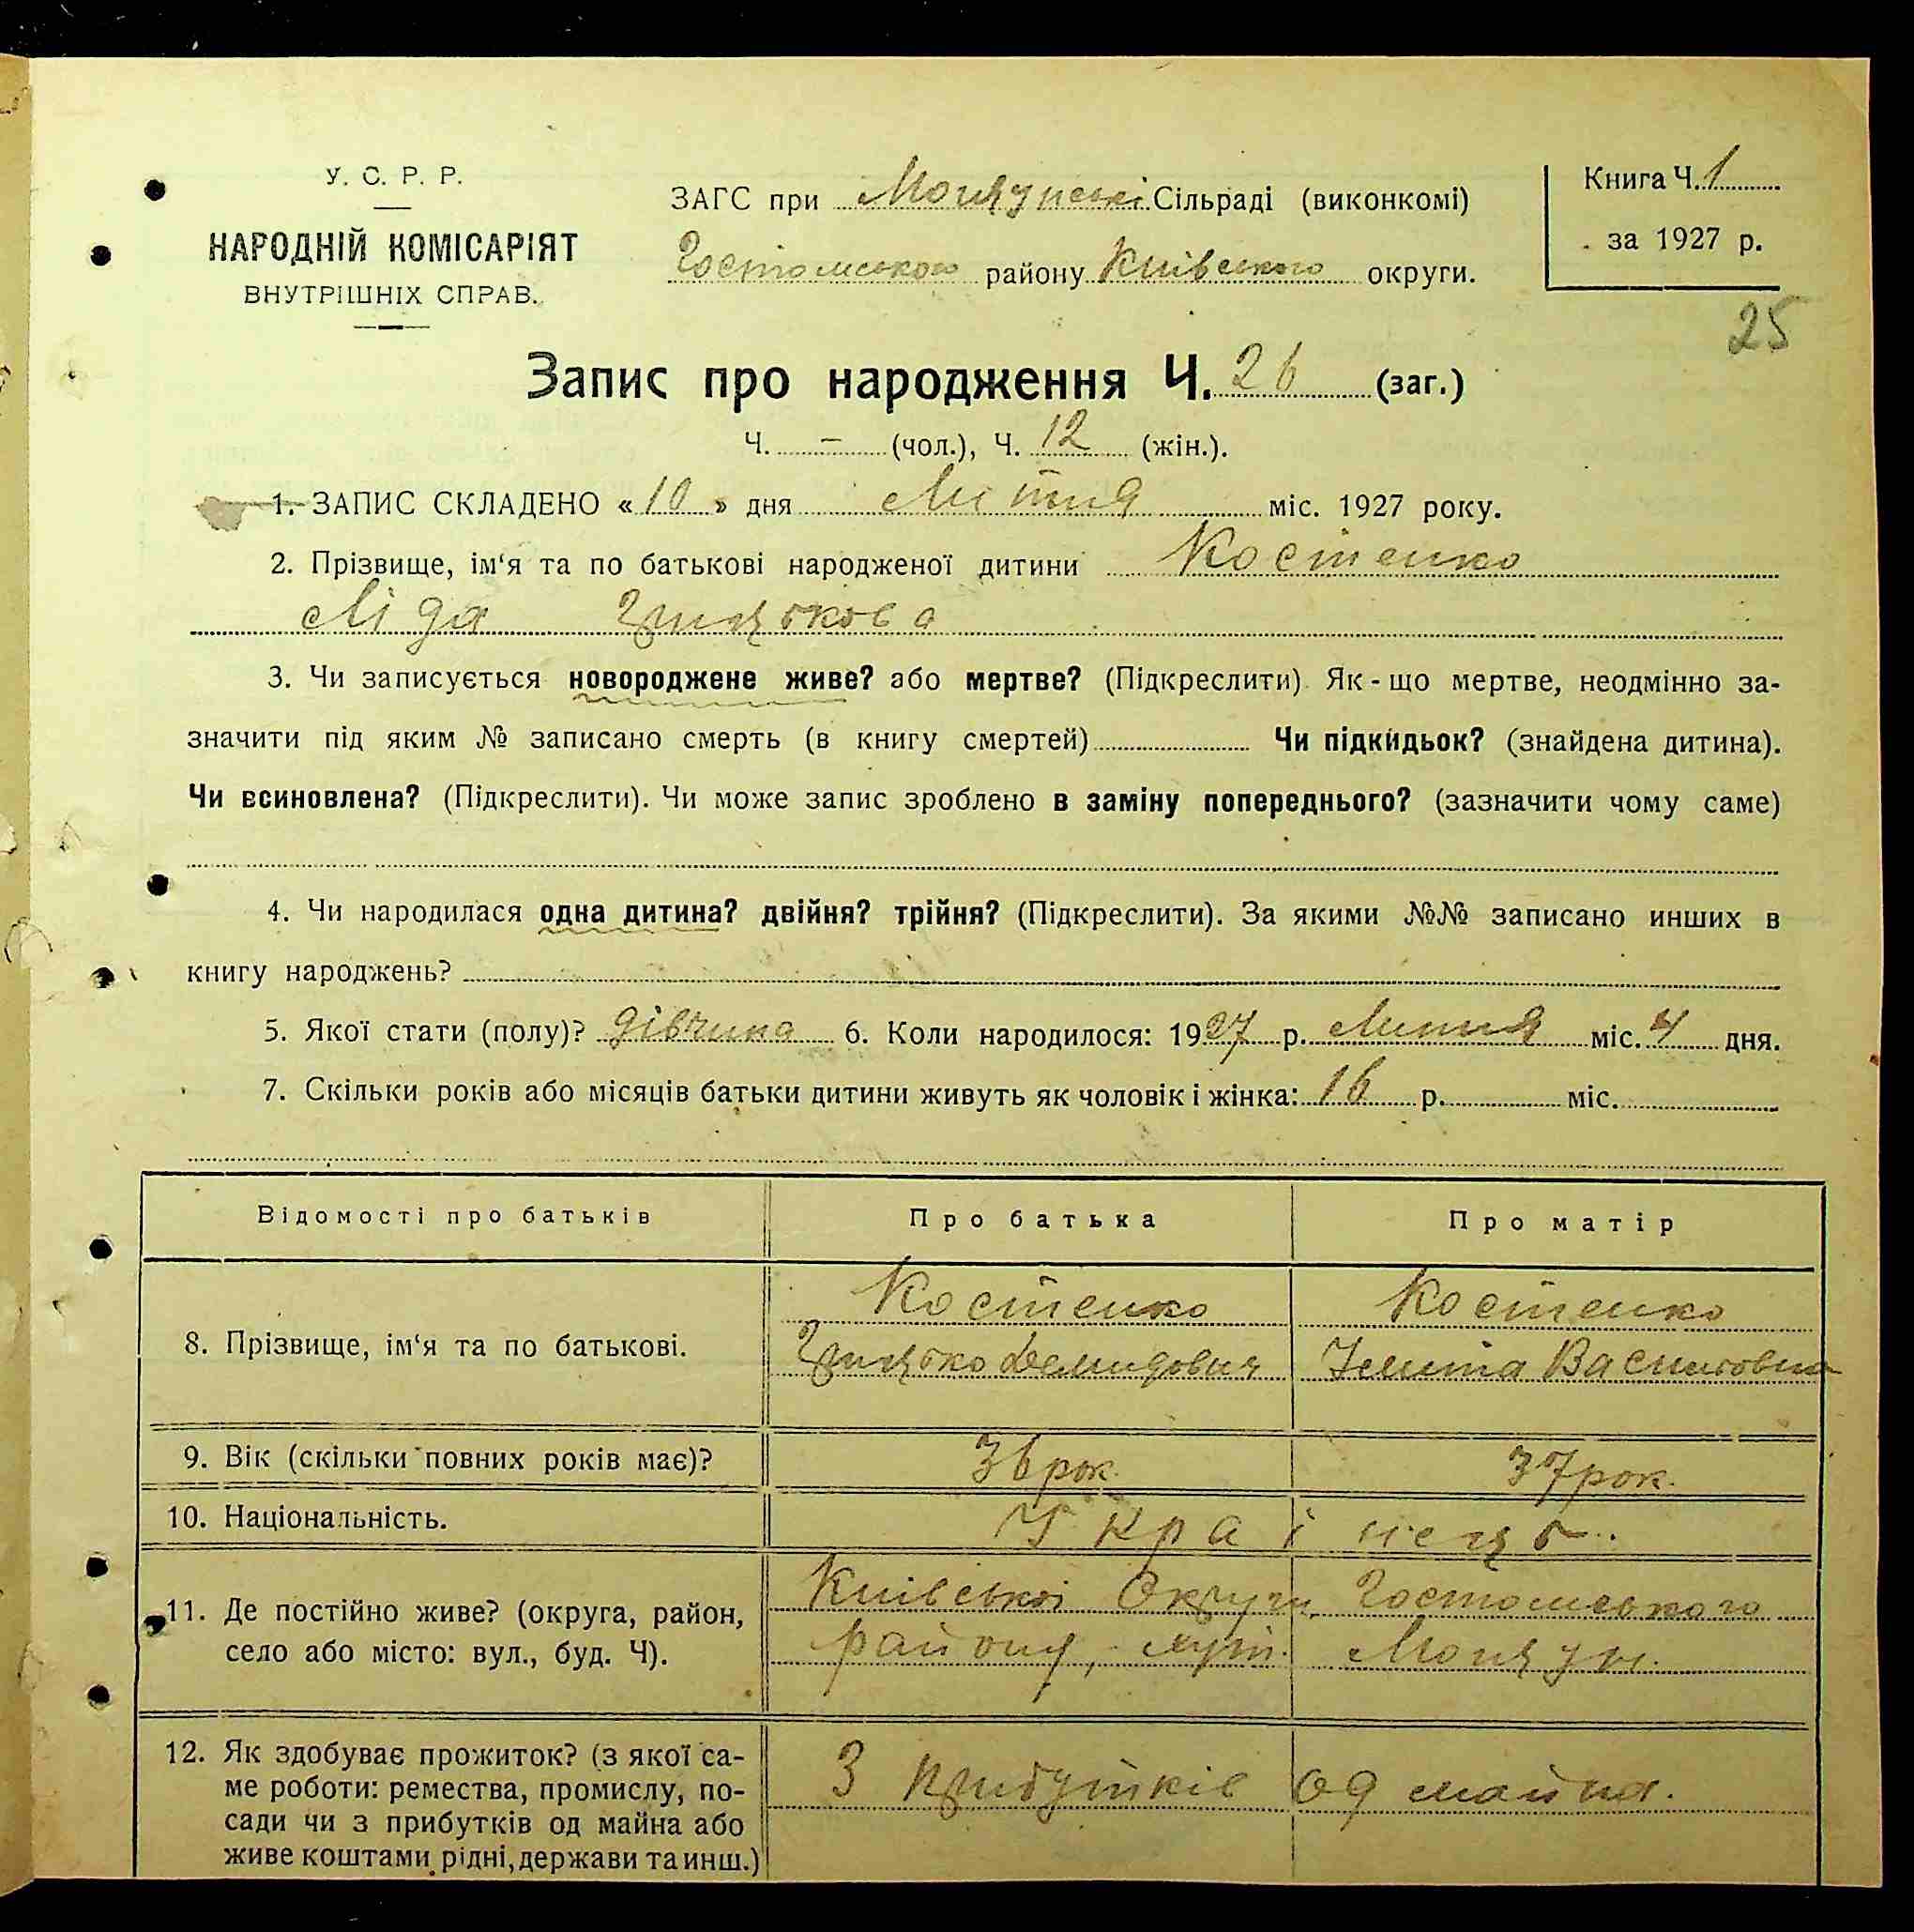 У. С. Р. Р.
НАРОДНІЙ КОМІСАРІЯТ
ВНУТРІШНІХ СПРАВ.
ЗАГС при Мощунські Сільраді (виконкомі)
Гостомського району Київського округи.
Книга Ч. 1
за 1927 р.
25
Запис про народження Ч. 26 (заг.)
Ч. – (чол.), Ч. 12 (жін.).
1. ЗАПИС СКЛАДЕНО « 10 » дня Липня міс. 1927 року.
2. Прізвище, ім‘я та по батькові народженої дитини Костенко
Ліда Грицькова
3. Чи записується новороджене живе? або мертве? (Підкреслити). Як-що мертве, неодмінно за-
значити під яким № записано смерть (в книгу смертей) Чи підкидьок? (знайдена дитина).
Чи всиновлена? (Підкреслити). Чи може запис зроблено в заміну попереднього? (зазначити чому саме)
4. Чи народилася одна дитина? двійня? трійня? (Підкреслити). За якими №№ записано инших в
книгу народжень?
5. Якої стати (полу)? дівчина 6. Коли народилося: 1927 р. Липня міс. 4 дня.
7. Скільки років або місяців батьки дитини живуть як чоловік і жінка: 16 р. міс.
Відомості про батьків Про батька Про матір
8. Прізвище, ім‘я та по батькові.
Костенко Костенко
Грицько Демидович Василовна
9. Вік (скільки повних років має)? 36 рок. 37 рок.
10. Національність. Українець.
11. Де постійно живе? (округа, район,
село або місто: вул., буд. Ч).
Київської Округи, Гостомського
району, хут. Мощун.
12. Як здобуває прожиток? (з якої са-
ме роботи: ремества, промислу, по-
сади чи з прибутків од майна або
живе коштами рідні, держави та инш.)
З прибутків од майна.